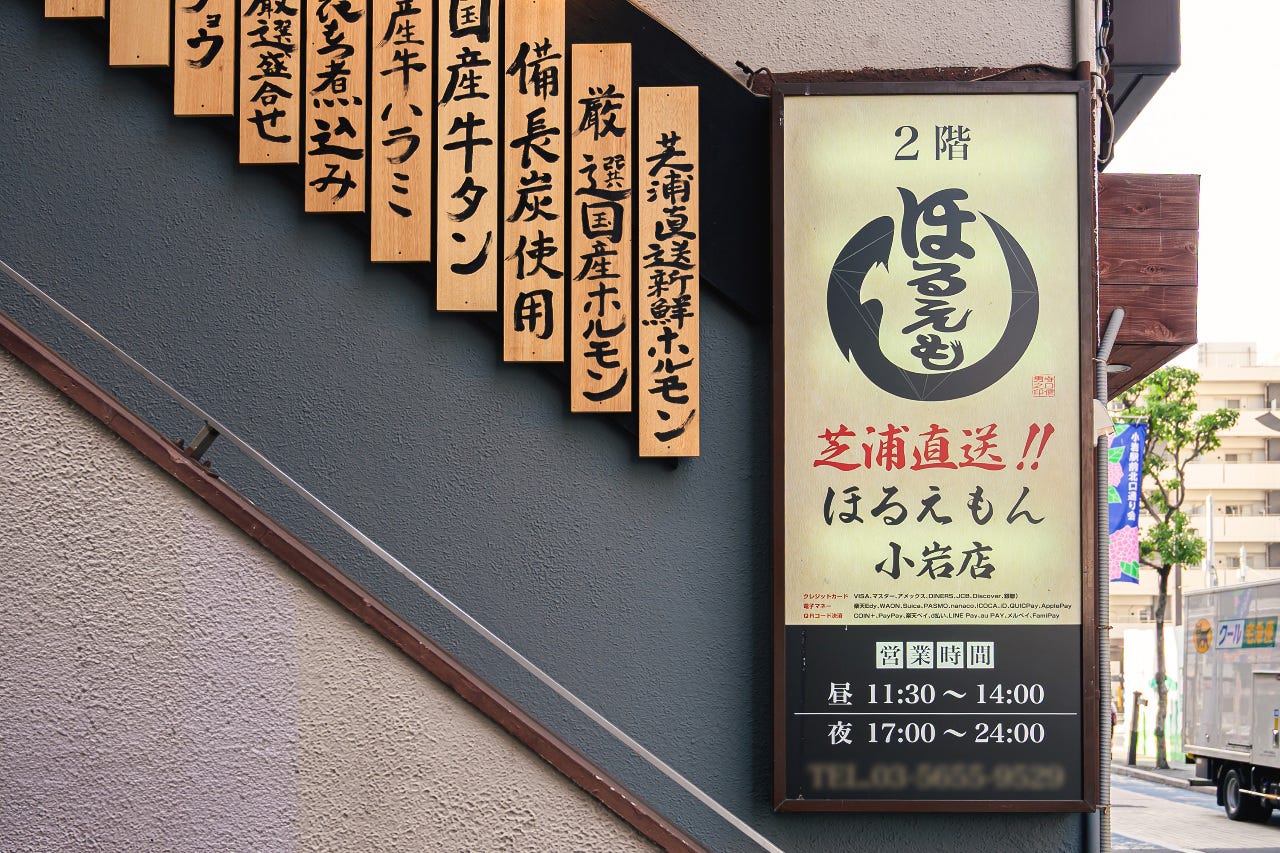 芝浦直送新鮮ホルモン
厳選国産ホルモン
備長炭使用
国産牛タン
産牛ハラミ
煮込み
厳選盛合せ
ョウ
2階
ほるえも
芝浦直送!!
ほるえもん
小岩店
クレジットカード VISA、マスター、アメックス、DINERS、JCB、Discover、銀聯)
電子マネー 楽天Edy、WAON、Suica、PASMO、nanaco、ICOCA、iD、QUICPay、ApplePay
QRコード決済 COIN+、PayPay、楽天ペイ、d払い、LINE Pay、au PAY、メルペイ、FamiPay
営業時間
昼 11:30～14:00
夜 17:00～24:00
小岩駅前北口通り会
クール宅急便